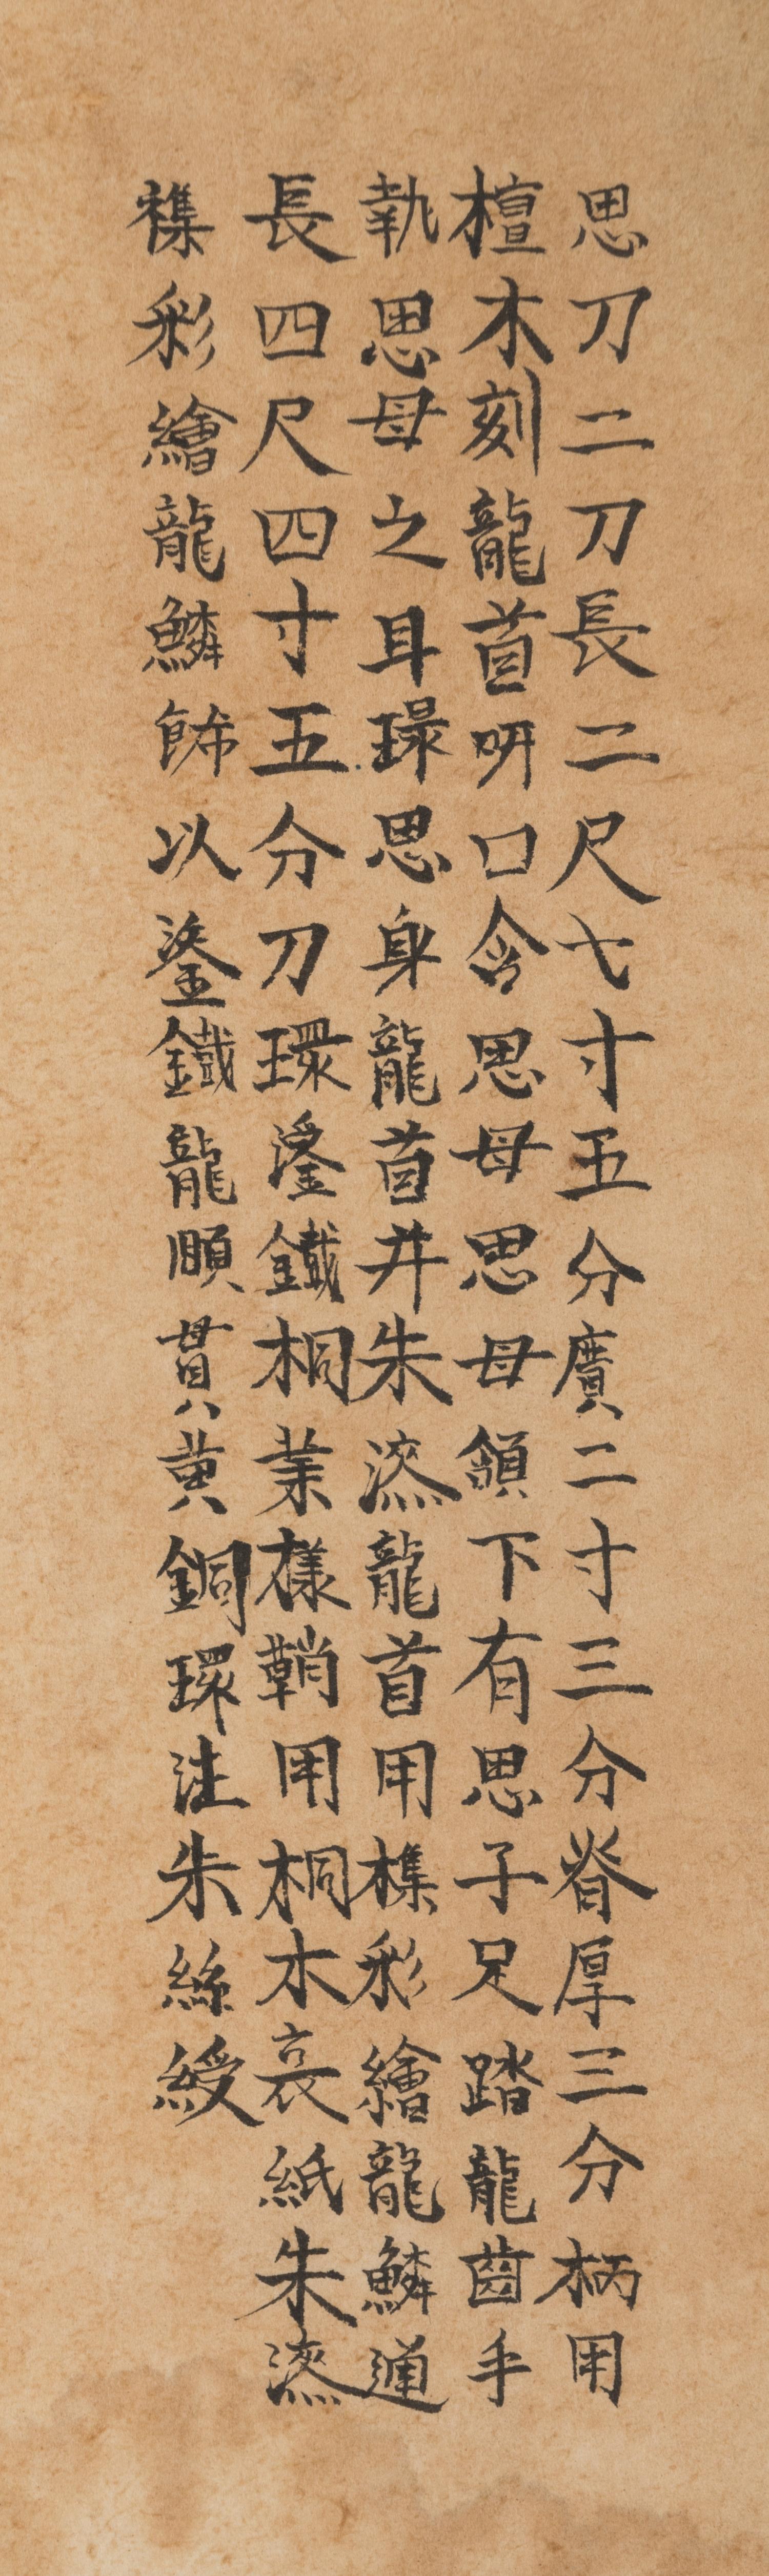 思刀二刀長二尺七寸五分廣二寸三分脊厚三分柄用
檀木刻龍首呀口含思母思母頷下有思子足踏龍齒手
執思母之耳環思身龍首并朱漆龍首用襍彩繪龍鱗通
長四尺四寸五分刀環鋈鐵桐葉樣鞘用桐木裹紙朱漆
襍彩繪龍鱗飾以鋈鐵龍順貫黄銅環注朱絲綬